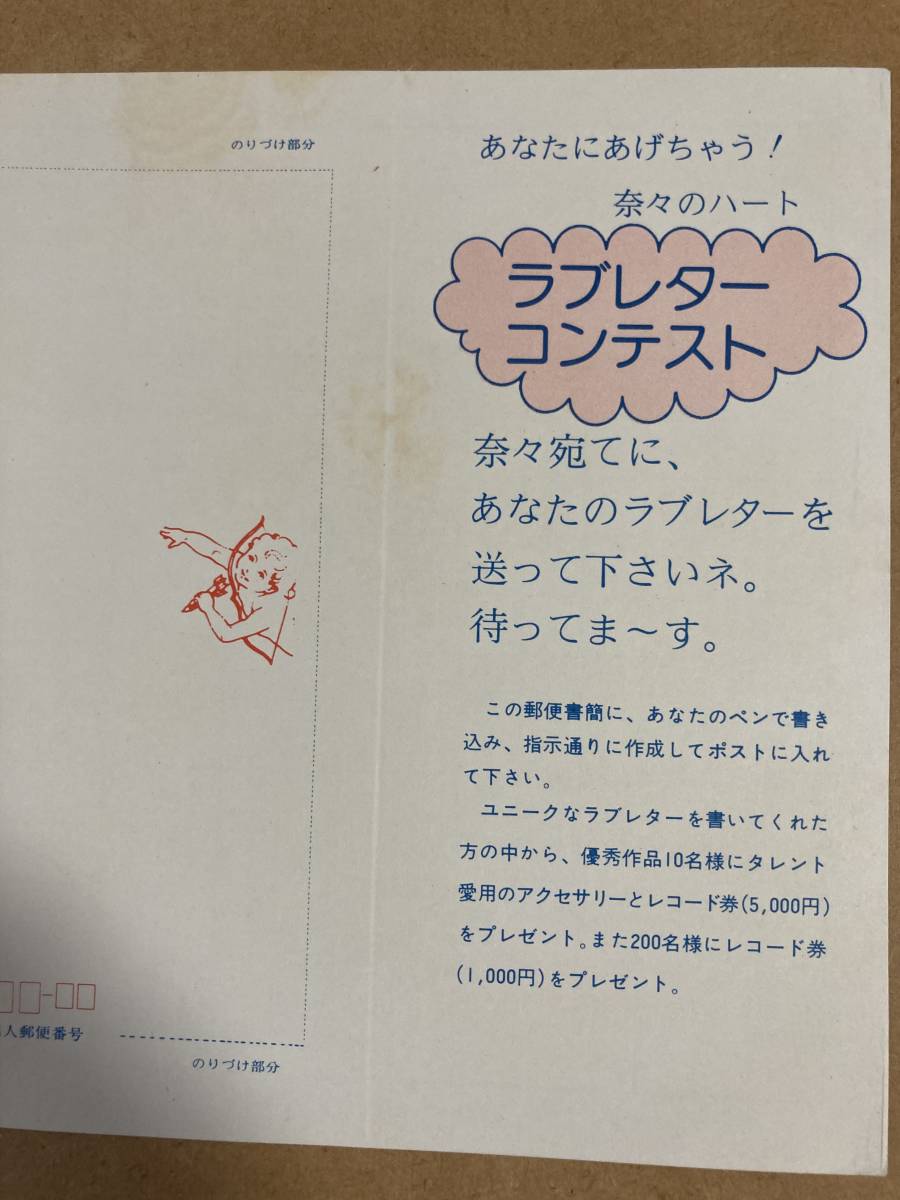 のりづけ部分
あなたにあげちゃう！
奈々のハート
ラブレター
コンテスト
奈々宛てに、
あなたのラブレターを
送って下さいネ。
待ってま〜す。
この郵便書簡に、あなたのペンで書き
込み、指示通りに作成してポストに入れ
て下さい。
ユニークなラブレターを書いてくれた
方の中から、優秀作品10名様にタレント
愛用のアクセサリーとレコード券(5,000円)
をプレゼント。また200名様にレコード券
(1,000円)をプレゼント。
人郵便番号
のりづけ部分